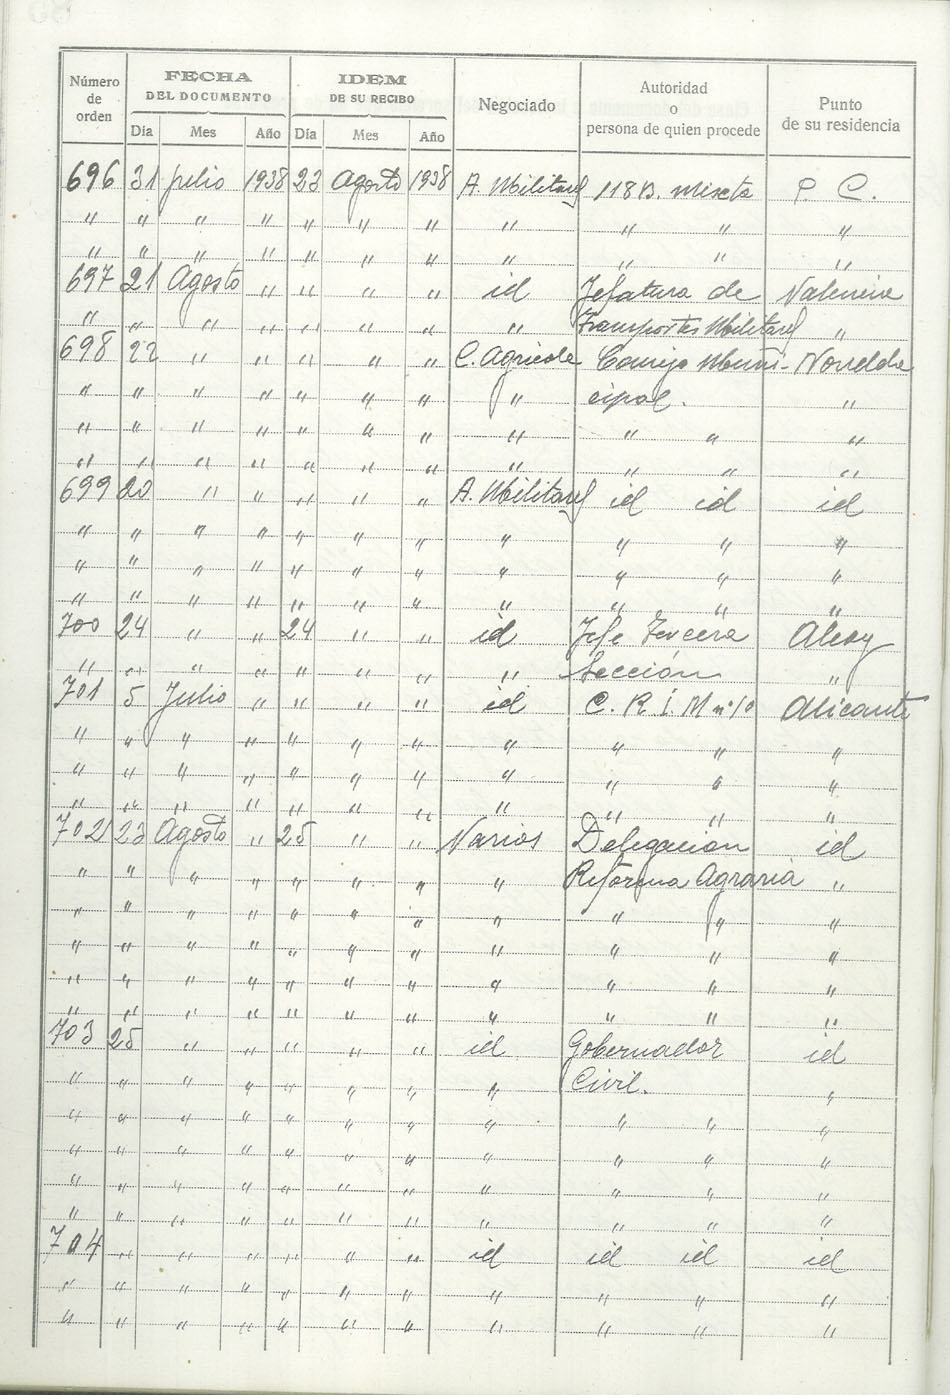 Número de orden FECHA DEL DOCUMENTO IDEM DE SU RECIBO Negociado Autoridad o persona de quien procede Punto de su residencia
Día Mes Año Día Mes Año
696 31 julio 1938 23 Agosto 1938 A. Militares 118 B. Mixta P. C.
" " " " " " " " " " "
" " " " " " " " " " "
697 21 Agosto " " " " id Jefatura de Valencia
" " " " " " " " Transportes Militares "
698 22 " " " " " C. Agricola Consejo Muni- Novelda
" " " " " " " " cipal. "
" " " " " " " " " " "
" " " " " " " " " " "
699 20 " " " " " A. Militares id id id
" " " " " " " " " " "
" " " " " " " " " " "
" " " " " " " " " " "
700 24 " " 24 " " id Jefe Tercera Alcoy
" " " " " " " " Sección "
701 5 Julio " " " " id C. R. I. M nº 10 Alicante
" " " " " " " " " " "
" " " " " " " " " " "
" " " " " " " " " " "
702 23 Agosto " 25 " " Varios Delegacion id
" " " " " " " " Reforma Agraria "
" " " " " " " " " " "
" " " " " " " " " " "
" " " " " " " " " " "
" " " " " " " " " " "
703 25 " " " " " id Gobernador id
" " " " " " " " Civil. "
" " " " " " " " " " "
" " " " " " " " " " "
" " " " " " " " " " "
" " " " " " " " " " "
704 " " " " " " id id id id
" " " " " " " " " " "
" " " " " " " " " " "